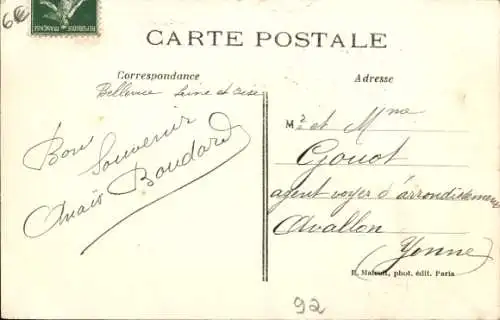 6€
RÉPUBLIQUE FRANÇAISE
CARTE POSTALE
Correspondance
Adresse
Bellevue Seine et Oise
Bon
Souvenir
Anaïs Boudard
Mr et Mme
Gouot
agent voyer d'arrondissement
Avallon
Yonne
phot. édit. Paris
92